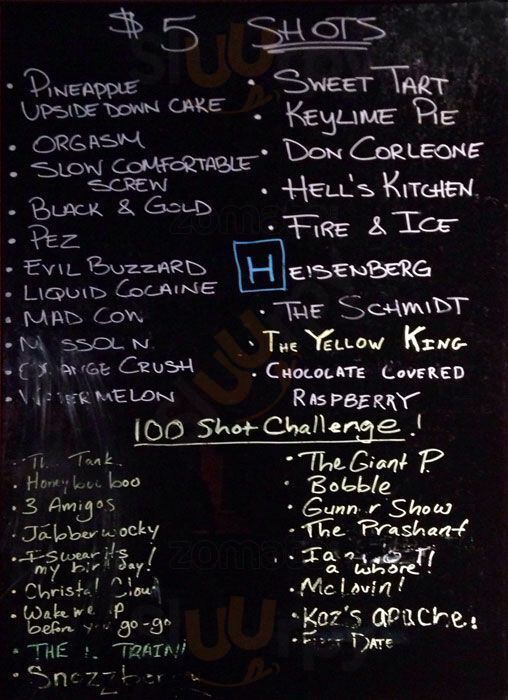 $5 SHOTS
• PINEAPPLE
UPSIDE DOWN CAKE
• ORGASM
• SLOW COMFORTABLE
SCREW
• BLACK & GOLD
• PEZ
• EVIL BUZZARD
• LIQUID COCAINE
• MAD COW
• ORANGE CRUSH
• WATERMELON
• SWEET TART
• KEYLIME PIE
• DON CORLEONE
• HELL'S KITCHEN
• FIRE & ICE
HEISENBERG
• THE SCHMIDT
• THE YELLOW KING
• CHOCOLATE COVERED
RASPBERRY
100 Shot Challenge!
• Tank
• Honey boo boo
• 3 Amigos
• Jabberwocky
• I Swear it's
my birthday!
• Christal Cloud
• Wake me up
before you go-go
• THE TRAIN!
• The Giant P.
• Bobble
• Gunner Show
• The Prashant
• I am NOT
a whore!
• McLovin!
• Koz's apache!
• First DATE